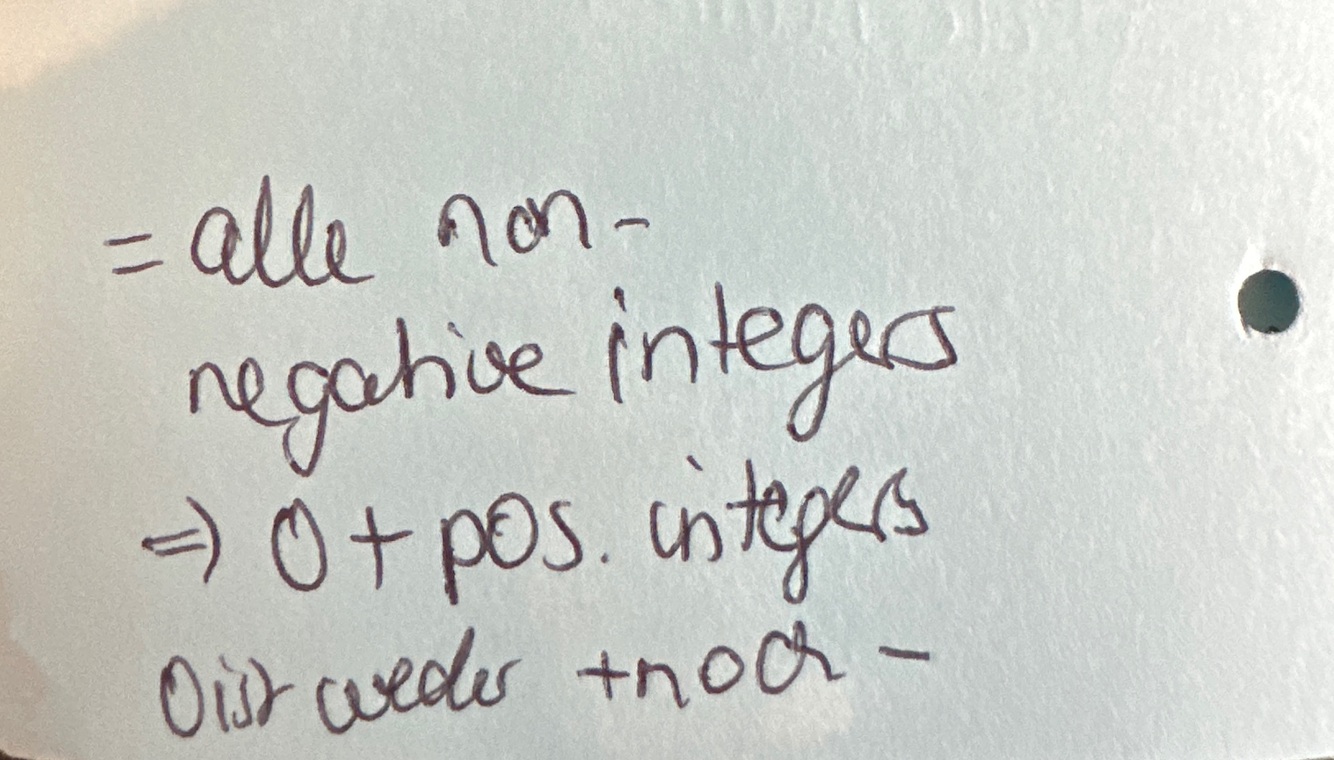 = alle non-
negative integers
=> 0 + pos. integers
0 ist weder + noch -